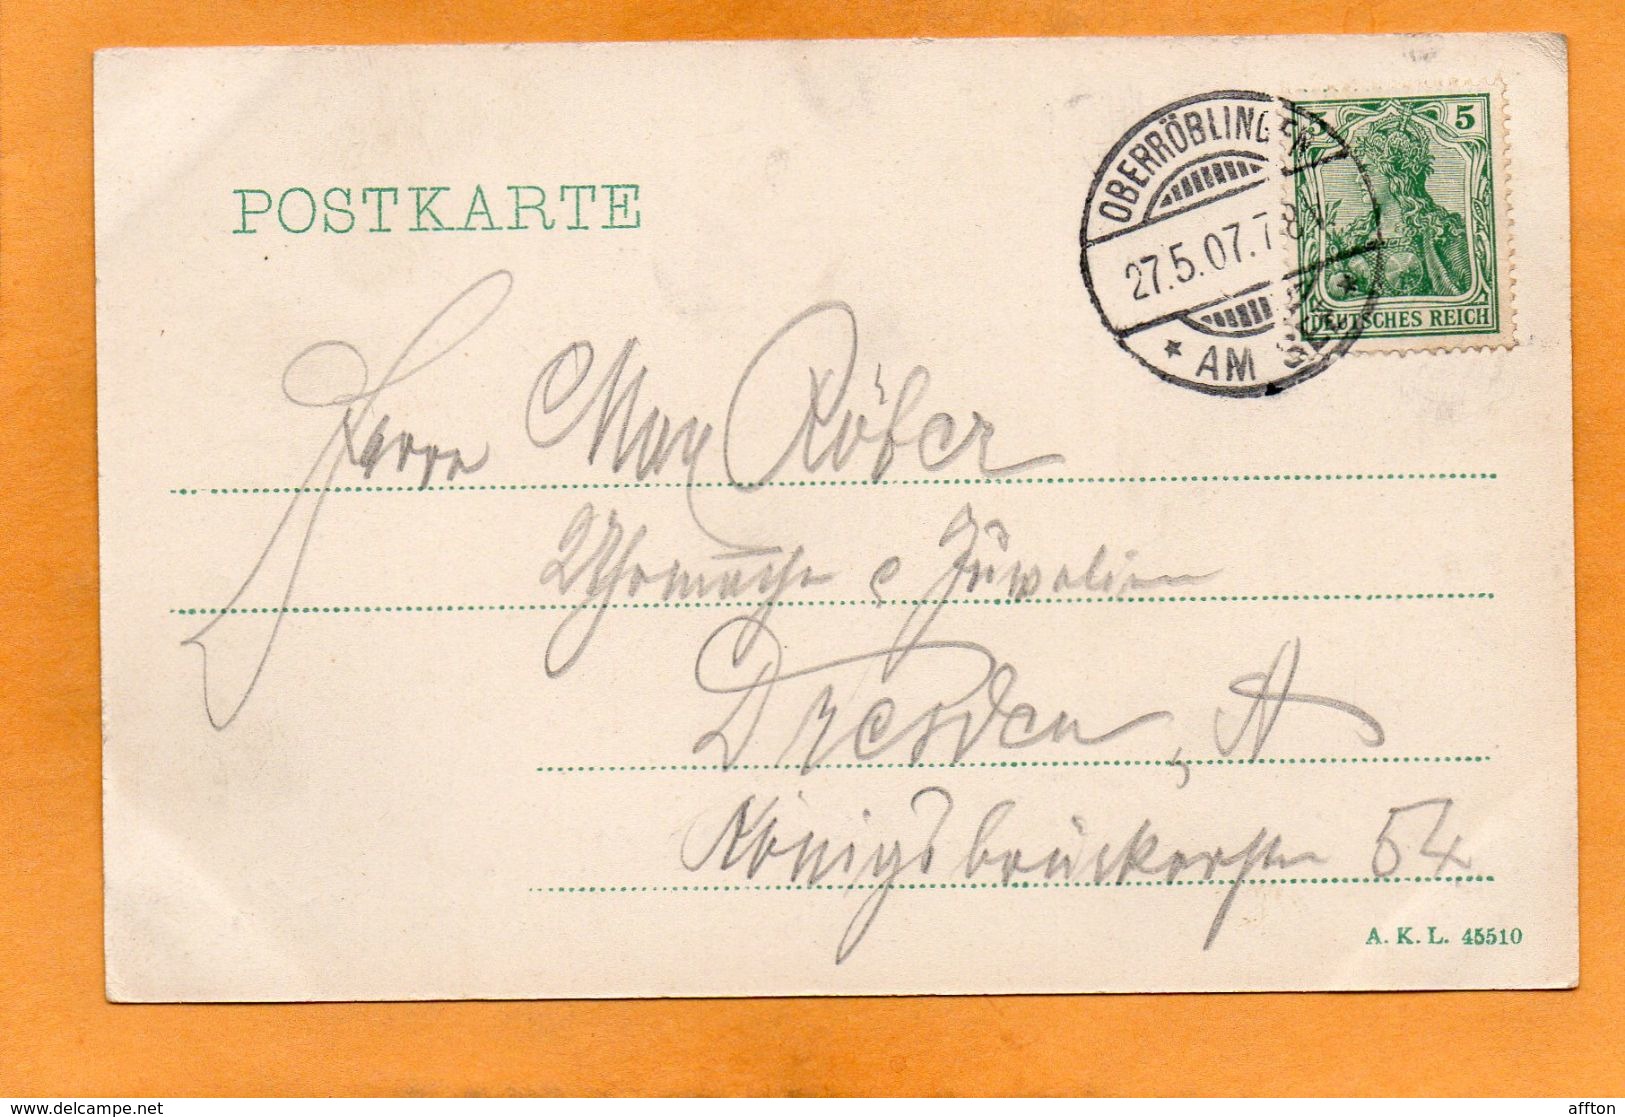 POSTKARTE
OBERRÖBLINGEN
27.5.07.7-8
* AM SEE *
5 5
DEUTSCHES REICH
Herrn Max Röber
Uhrmacher & Juwelier
Dresden, A
Königsbrückerstr 54
A. K. L. 45510
www.delcampe.net
affton